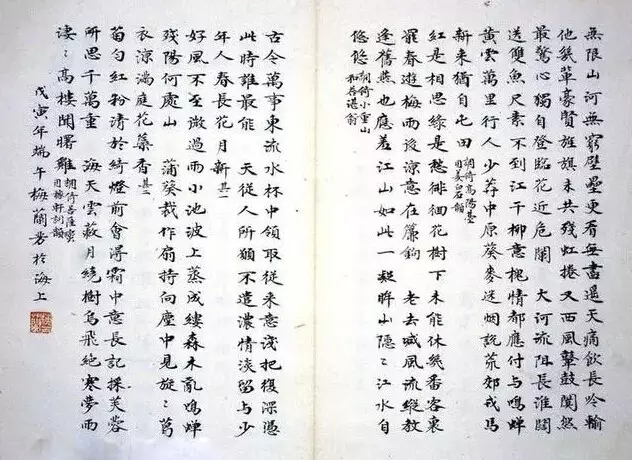 無限山河無窮壁壘更看無盡遥天痛飲長吟輸
他幾輩豪賢旌旗未共殘虹捲又西風鼙鼓闐然
最驚心獨自登臨花近危闌 大河流阻長淮闊
送雙魚尺素不到江干柳意槐情都應付与鳴蟬
黄雲萬里行人少莽中原葵麥送烟説荒郊戎馬
新来猶自屯田 胡倚高陽臺
用姜白石韻
紅是相思緑是愁徘徊花樹下未能休幾番客裏
罷春遊梅雨後涼意在簾鉤 老去風流縱教
逢舊燕也應羞江山如此一凝眸山隱〻江水自
悠悠 胡倚小重山
和吾湛翁
古今萬事東流水杯中領取従来意淺把復深憑
此時誰最能 天従人所願不遣濃情淡留与少
年人春長花月新 其一
好風不至過雨小池波上蒸成縷森木亂鳴蟬
殘陽何處山 蒲葵裁作扇持向塵中見旋〻
衣涼満庭花藥香 其二
勻紅粉清於綺燈前會得霜中意長記採芙蓉
所思千萬重 海天雲藪月繞樹烏飛絶寒夢雨
淒〻高樓聞曙雞 胡倚菩薩蠻
用稼軒韻
戊寅年端午梅蘭芳於海上